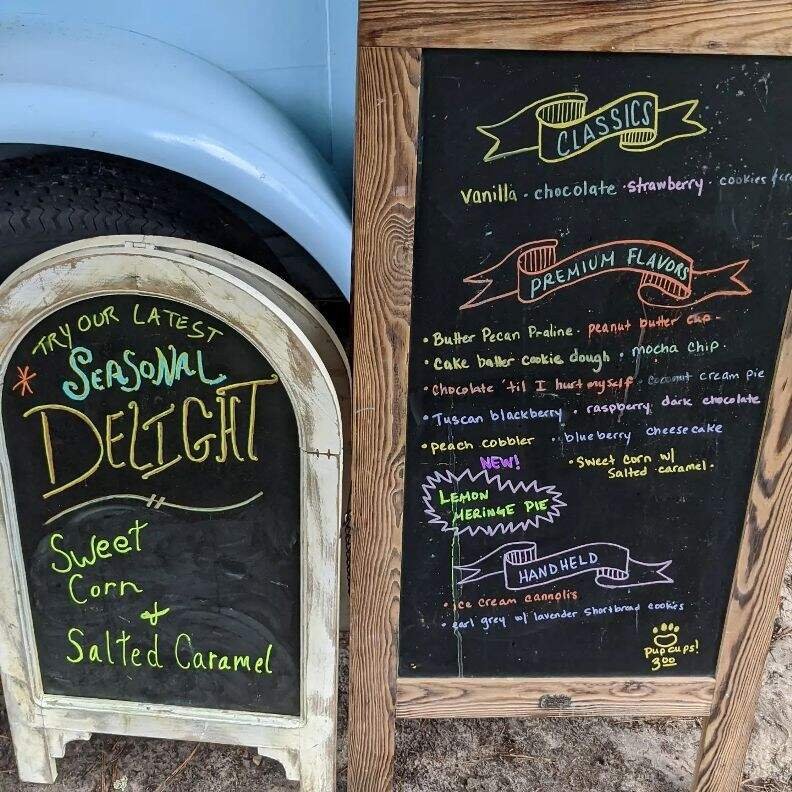 TRY OUR LATEST
* SEASONAL
DELIGHT
Sweet
Corn
&
Salted Caramel
CLASSICS
Vanilla · chocolate · strawberry · cookies &
PREMIUM FLAVORS
• Butter Pecan Praline · peanut butter cup ·
• Cake batter cookie dough · mocha chip ·
• chocolate 'til I hurt myself · coconut cream pie
• Tuscan blackberry · raspberry dark chocolate
• peach cobbler · blueberry cheesecake
NEW!
• Sweet Corn w/
Salted caramel ·
LEMON
MERINGE PIE
HANDHELD
• ice cream cannolis
• earl grey w/ lavender shortbread cookies
pup cups!
3.00